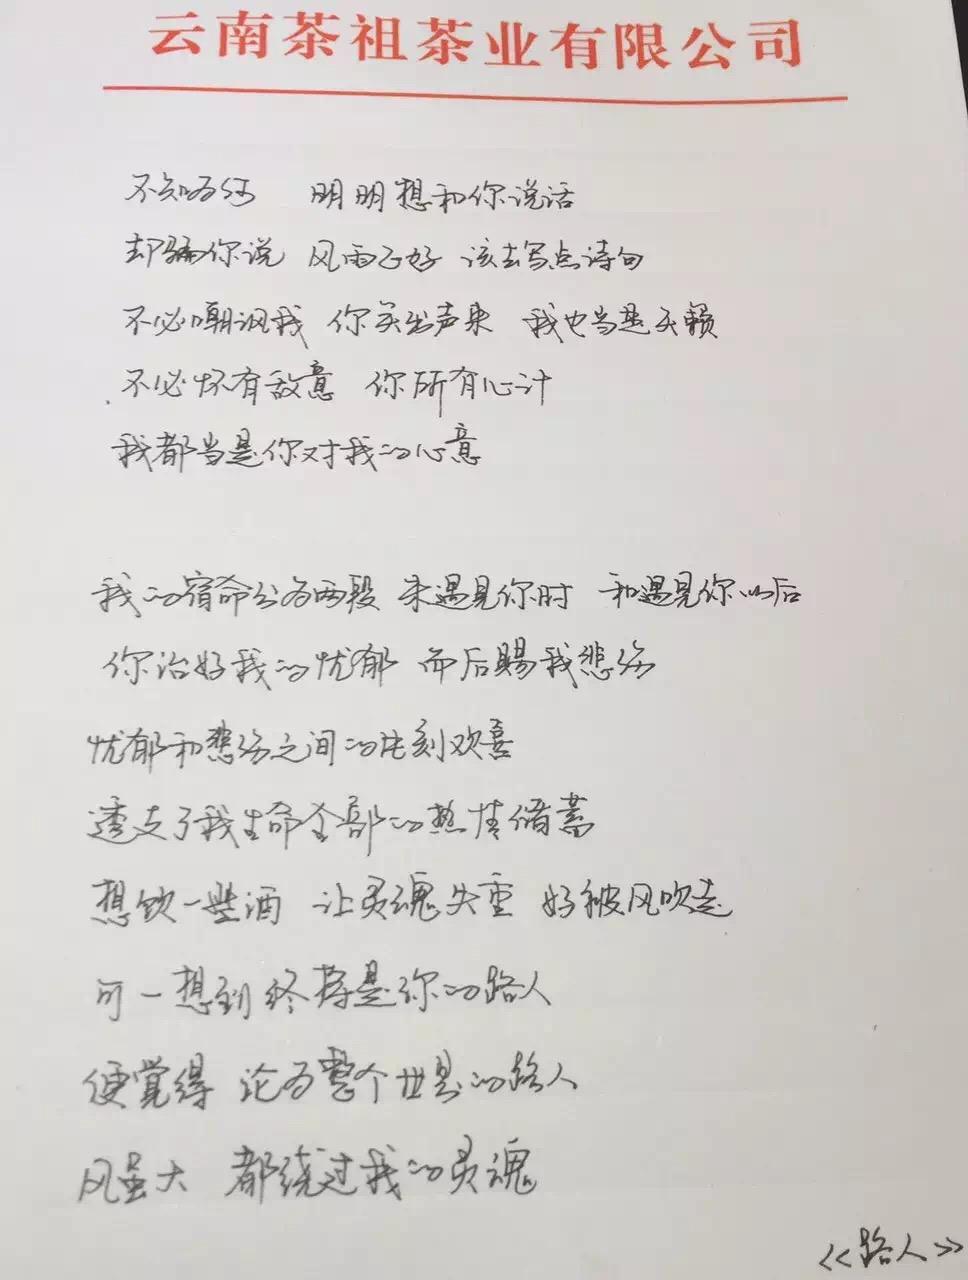 云南茶祖茶业有限公司
不知为何 明明想和你说话
却骗你说 风雨正好 该去写点诗句
不必嘲讽我 你笑出声来 我也当是天籁
不必怀有敌意 你所有心计
我都当是你对我的心意
我的宿命分为两段 未遇见你时 和遇见你以后
你治好我的忧郁 而后赐我悲伤
忧郁和悲伤之间的片刻欢喜
透支了我生命全部的热情储蓄
想饮一些酒 让灵魂失重 好被风吹走
可一想到终将是你的路人
便觉得 沦为整个世界的路人
风虽大 都绕过我的灵魂
《路人》